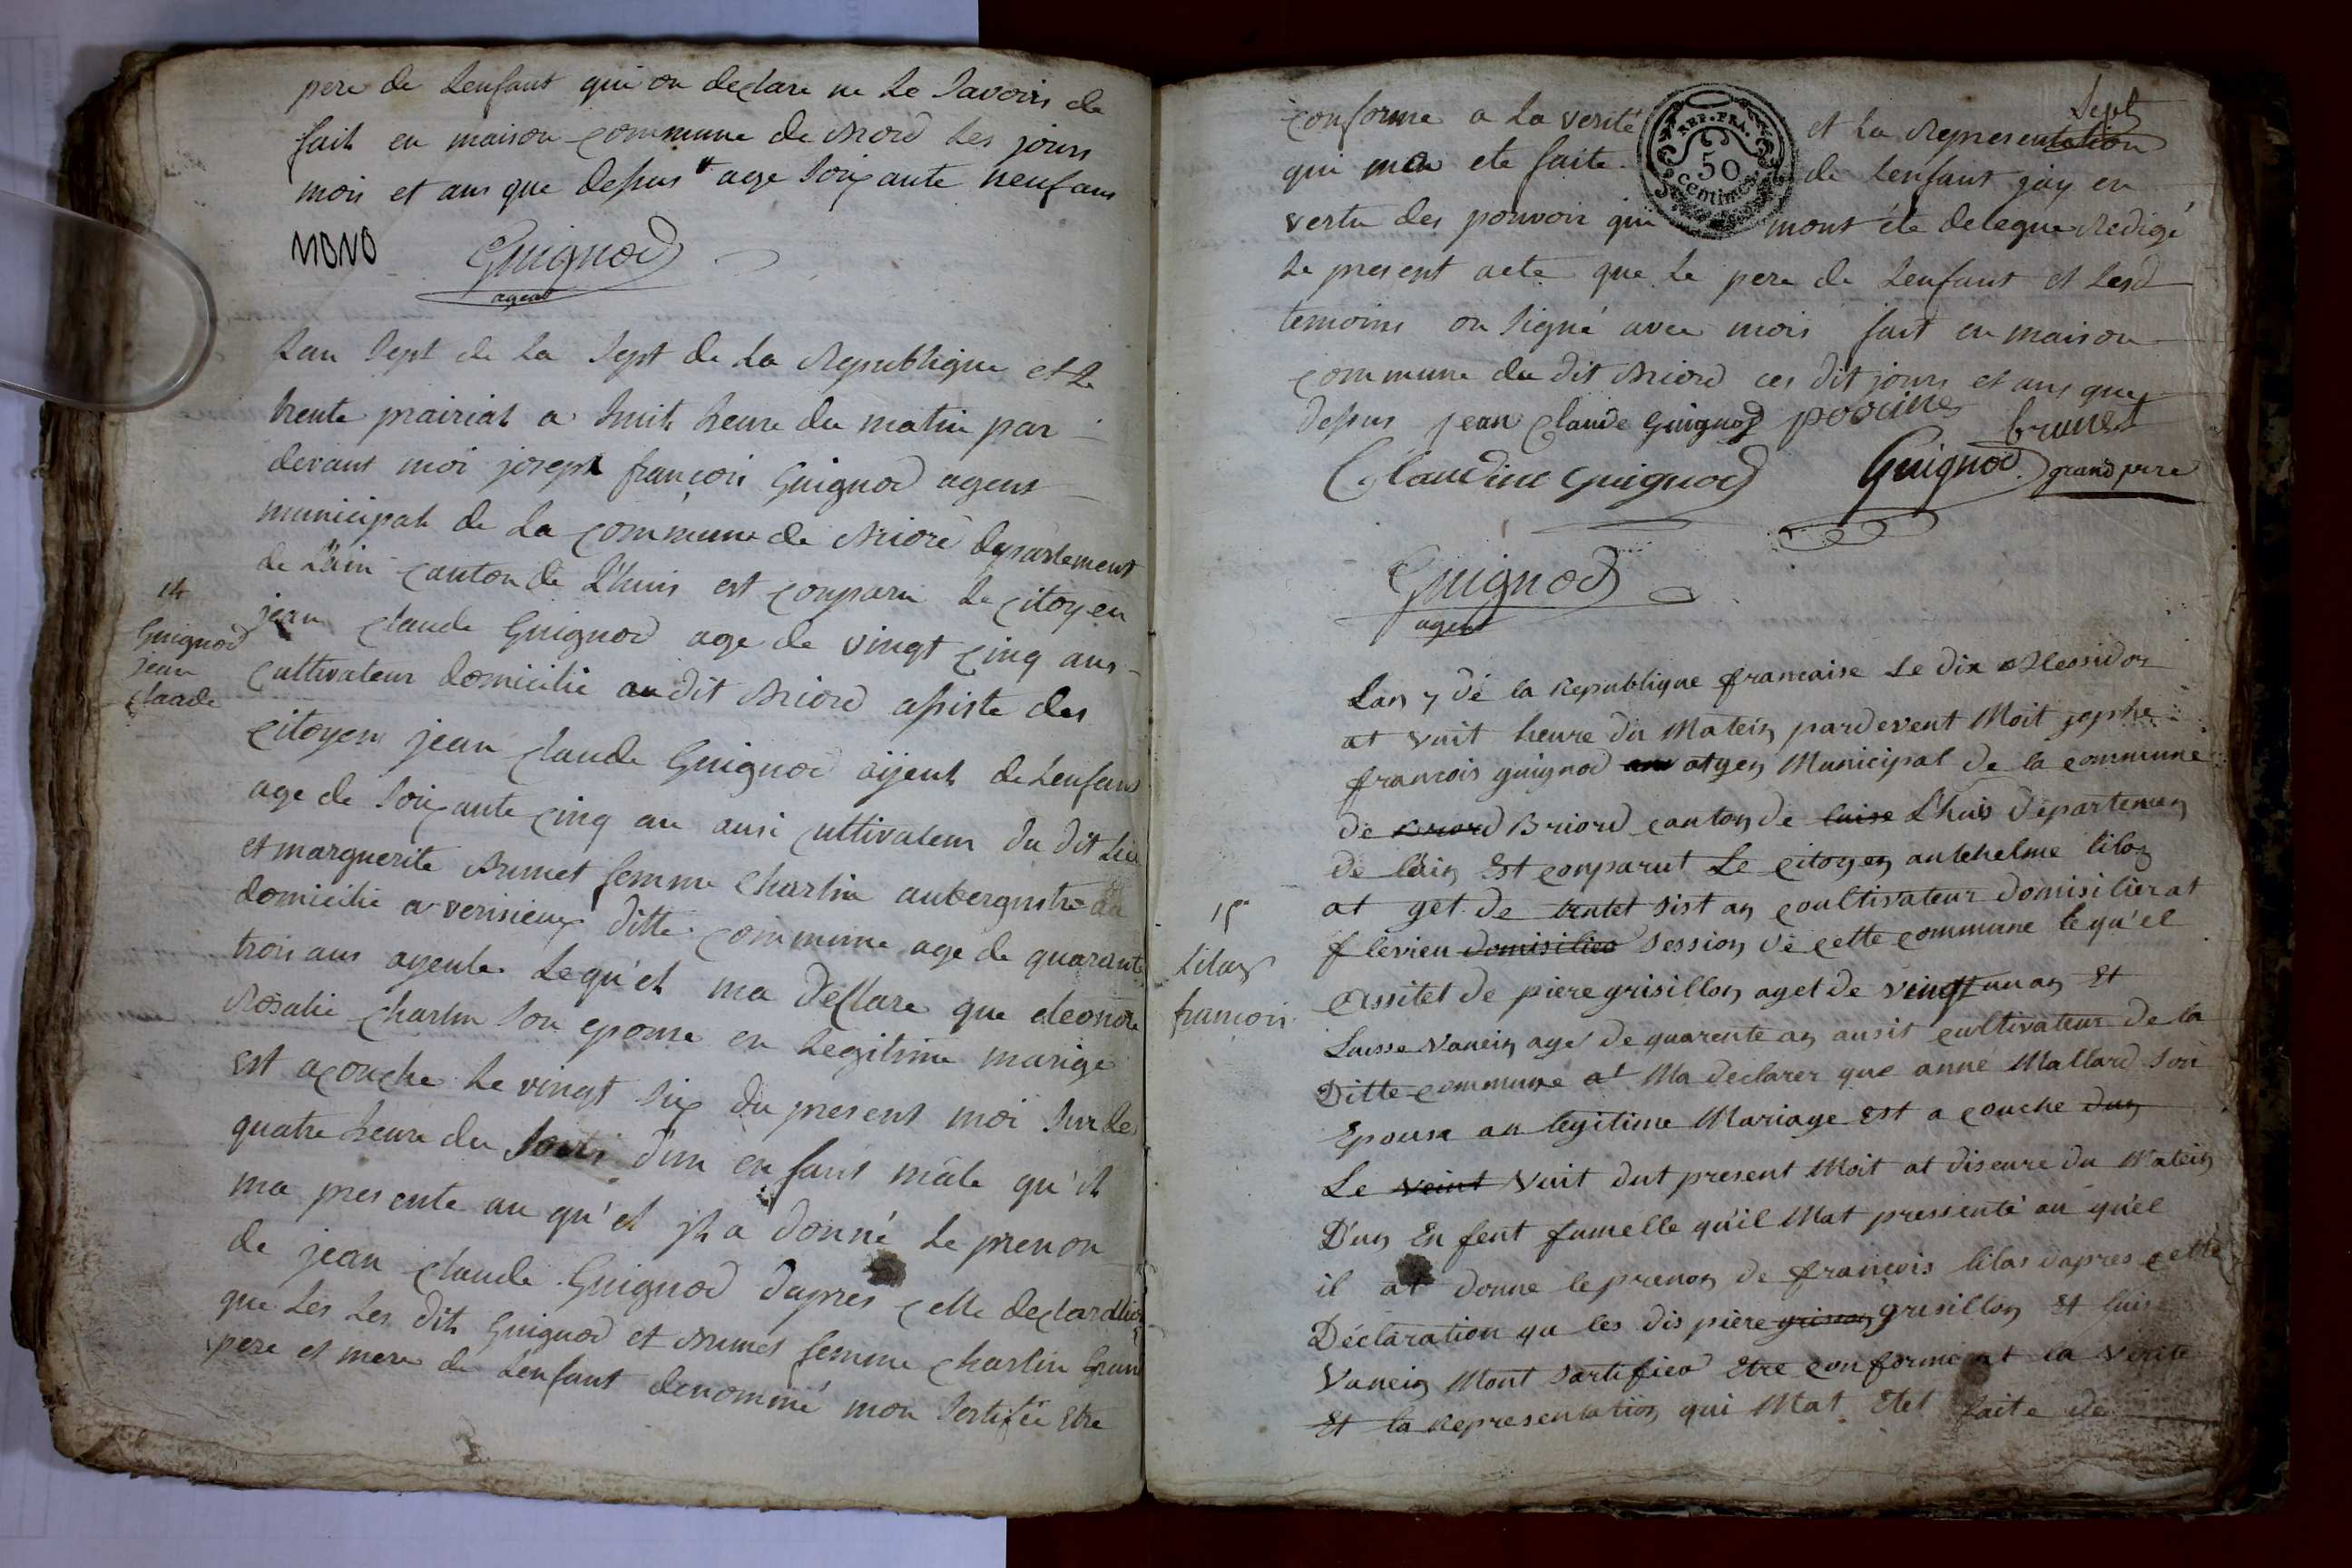 pere de Lenfant qui on declare ne Le Savoirs de
fait en maison commune de Briord Les jours
mois et ans que dessus age soixante neuf ans
Guignod
agent
Lan Sept de La Sept de La Republique et Le
trente prairial a huit heure du matin par
devant moi joseph françois Guignod agent
municipal de La commune de Briord departement
de L'ain canton de L'huis est conparu Le citoyen
14
Guignod
jean
claude
jean claude Guignod age de vingt cinq ans
cultivateur domicilié au dit Briord assiste des
citoyens jean claude Guignod aÿeul de Lenfans
age de soixante cinq an ausi cultivateur du dit Lieu
et marguerite Brunet femme charlin aubergistre
domicilié a verisieux ditte commune age de quarante
trois ans ayeule Lequ'el ma declare que eleonore
Rosalie charlin Son epouse en Legitime marige
est acouche Le vingt six du present moi Sur Les
quatre heure du Soirs d'un enfant mâle qu'il
ma presente au qu'el il a donné Le prenon
de jean claude Guignod dapres cette declaration
que Les Les dit Guignod et Brunet femme charlin Grand
pere et mere de Lenfant denommé mon Sertifié Etre
Sept
REP. FRA.
50
centimes
conforme a La verité et La Representation
qui ma ete faite de Lenfant jay en
vertu des pouvoir qui mont été delegue Redigé
Le present acte que Le pere de Lenfant et Lesd
temoins on Signé avec mois fait en maison
commune du dit Briord ces dit jours et ans que
dessus jean claude Guignod
brunet
Claudine Guignod Guignod grand pere
Guignod
agent
Lan 7 de la Republique francaise Le dix Messidor
at vuit heure du Matein pardevent Moit josphe
francois guignod atgen Municipal de la commune
de Briord Briord canton de luise L'huis departemen
de l'ain Est conparut Le citoyen antehelme lilaz
at get de trentet sist an coultivateur domisilier at
15
Lilaz
francois
flevieu domisilier session de cette commune lequ'el
assitet de piere grisillon aget de vingt un an Et
Luisse vanein age de quarente an ausit cultivateur de la
Ditte commune at Ma declarer que anne Mallard Son
Epouse an legitime Mariage est a couche dun
Le veint vuit dut present Moit at diseure du Matein
D'un En fent fumelle qu'il Mat pressenté au qu'el
il at donne le prenon de francois lilas dapres cette
Déclaration qu les dis piere grison grisillon Et Luis
Vanein Mont sartifier Etre conforme at la vérité
Et la Representation qui Mat Etet faite de